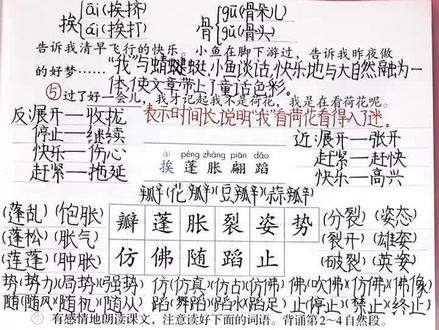 挨 āi(挨挤) ái(挨打) 骨 gū(骨朵儿) gǔ(骨头)
告诉我清早飞行的快乐。小鱼在脚下游过，告诉我昨夜做
的好梦……"我"与蜻蜓，小鱼谈话，快乐地与大自然融为一
体，使文章带上了童话色彩。
⑤过了好一会儿，我才记起我不是荷花，我是在看荷花呢。
表示时间长，说明"我"看荷花看得入了迷。
反：展开—收拢 近：展开—张开
停止—继续 赶紧—赶快
快乐—伤心 快乐—高兴
赶紧—拖延
āi péng zhàng piān dǎo
挨 蓬 胀 翩 蹈
瓣(花瓣)(豆瓣)(蒜瓣)
瓣 蓬 胀 裂 姿 势
仿 佛 随 蹈 止
(蓬乱)(饱胀) (分裂)(姿态)
(蓬松)(胀气) (裂开)(雄姿)
(莲蓬)(肿胀) (破裂)(英姿)
势(势力)(局势)(强势) 仿(仿真)(仿古)(仿制) 佛(吹佛)(仿佛)(佛像)
随(随风)(随机)(随从) 蹈(舞蹈)(蹈水)(蹈足) 止(停止)(禁止)(终止)
有感情地朗读课文，注意读好下面的词语。背诵第2～4自然段。